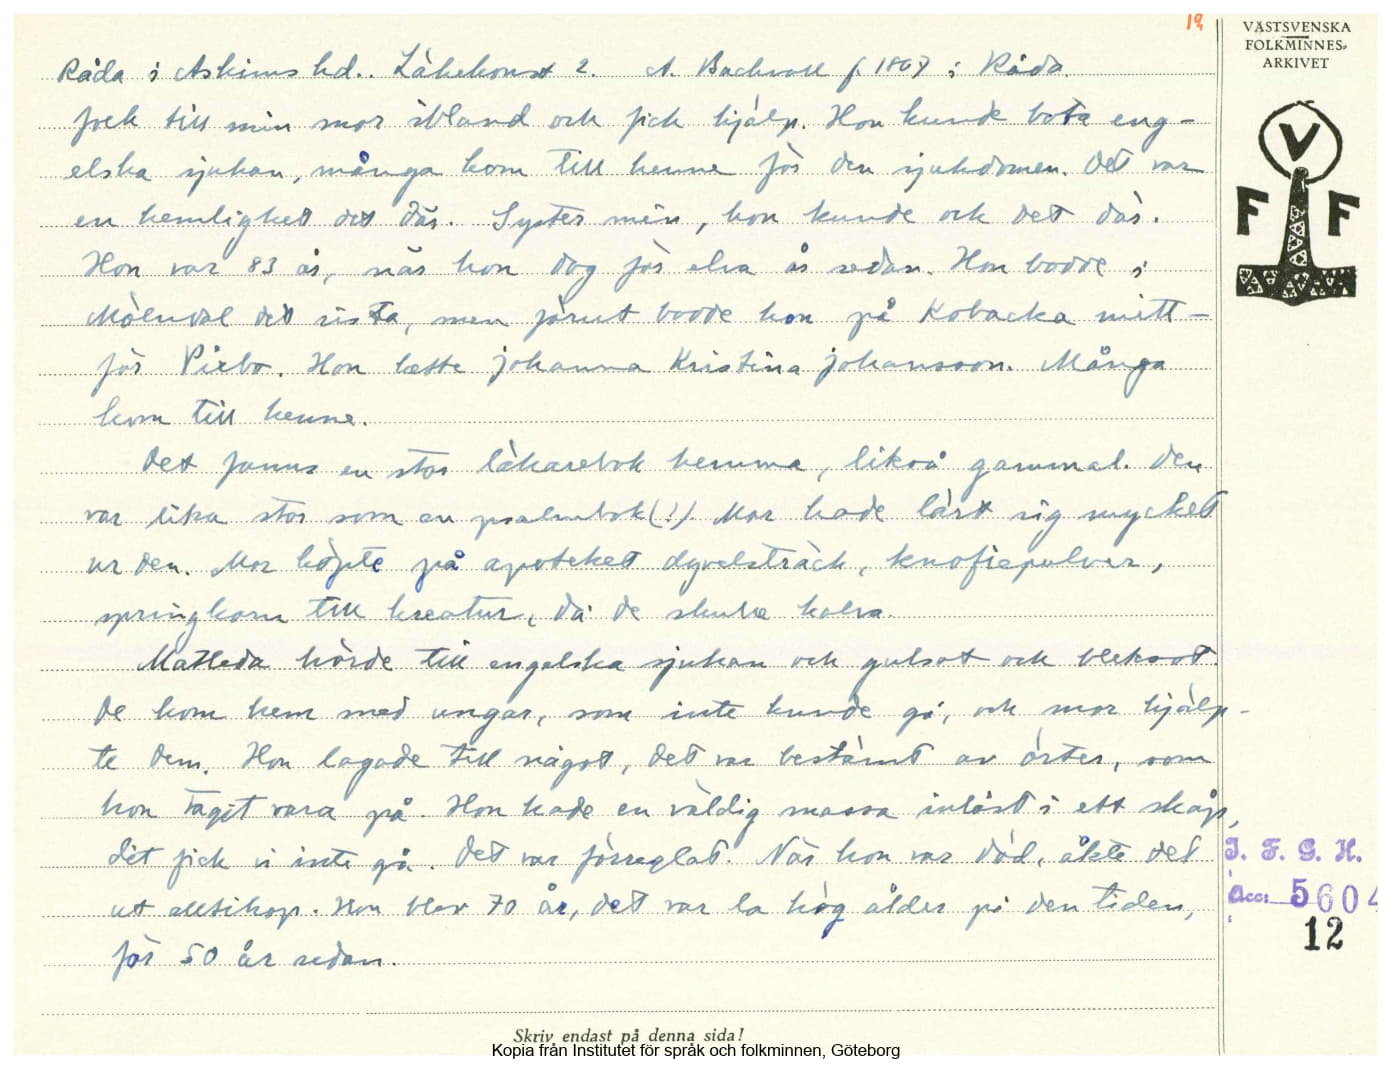 19
VÄSTSVENSKA
FOLKMINNES-
ARKIVET
V
F F
Råda i Askims hd. Läkekonst 2. A. Backvall f. 1867 i Råda.
folk till min mor ibland och fick hjälp. Hon kunde bota eng-
elska sjukan, många kom till henne för den sjukdomen. Det var
en hemlighet det där. Syster min, hon kunde ock det där.
Hon var 83 år, när hon dog för elva år sedan. Hon bodde i
Mölndal det sista, men förut bodde hon på Kobacka mitt-
för Pixbo. Hon hette Johanna Kristina Johansson. Många
kom till henne.
Det fanns en stor läkarebok hemma, likså gammal. Den
var lika stor som en psalmbok(!). Mor hade lärt sig mycket
ur den. Mor köpte på apoteket dyvelsträck, knoflepulver,
springkorn till kreatur, då de skulle kalva.
Matleda hörde till engelska sjukan och gulsot och bleksot.
De kom hem med ungar, som inte kunde gå, och mor hjälp-
te dem. Hon lagade till något, det var bestämt av örter, som
hon tagit vara på. Hon hade en väldig massa inlåst i ett skåp,
dit fick vi inte gå. Det var förreglat. När hon var död, åkte det
ut alltihop. Hon blev 70 år, det var la hög ålder på den tiden,
för 50 år sedan.
I. F. G. H.
Acc: 5604
12
Skriv endast på denna sida!
Kopia från Institutet för språk och folkminnen, Göteborg